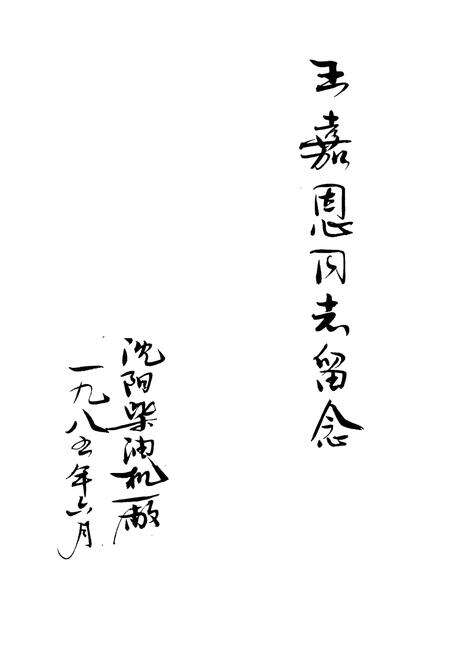 王嘉恩同志留念
沈阳柴油机厰
一九八五年六月